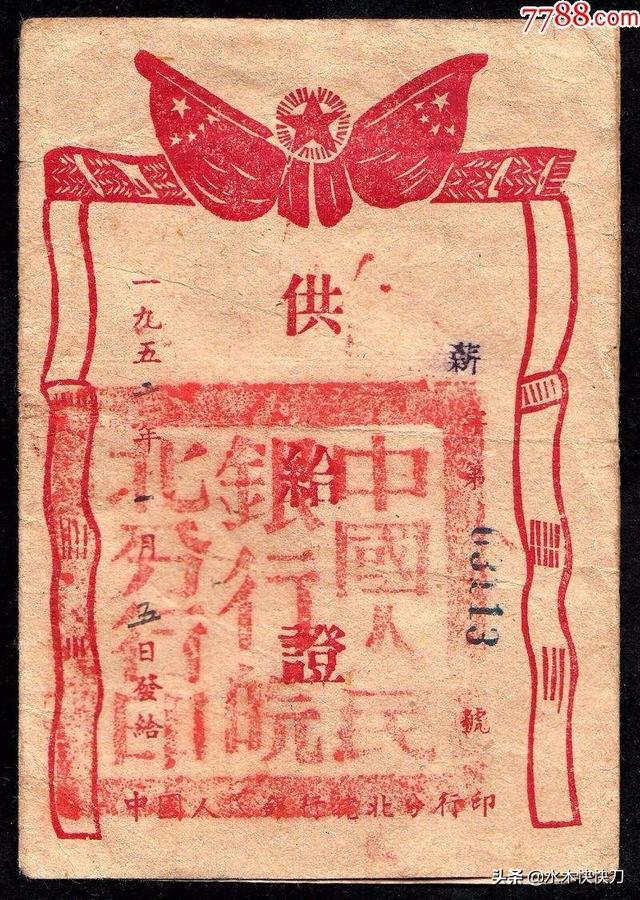 7788.com
薪字第 63113 號
供給證
一九五二年一月五日發給
中國人民
銀行皖
北分行印
中國人民銀行皖北分行印
头条 @水木快快刀